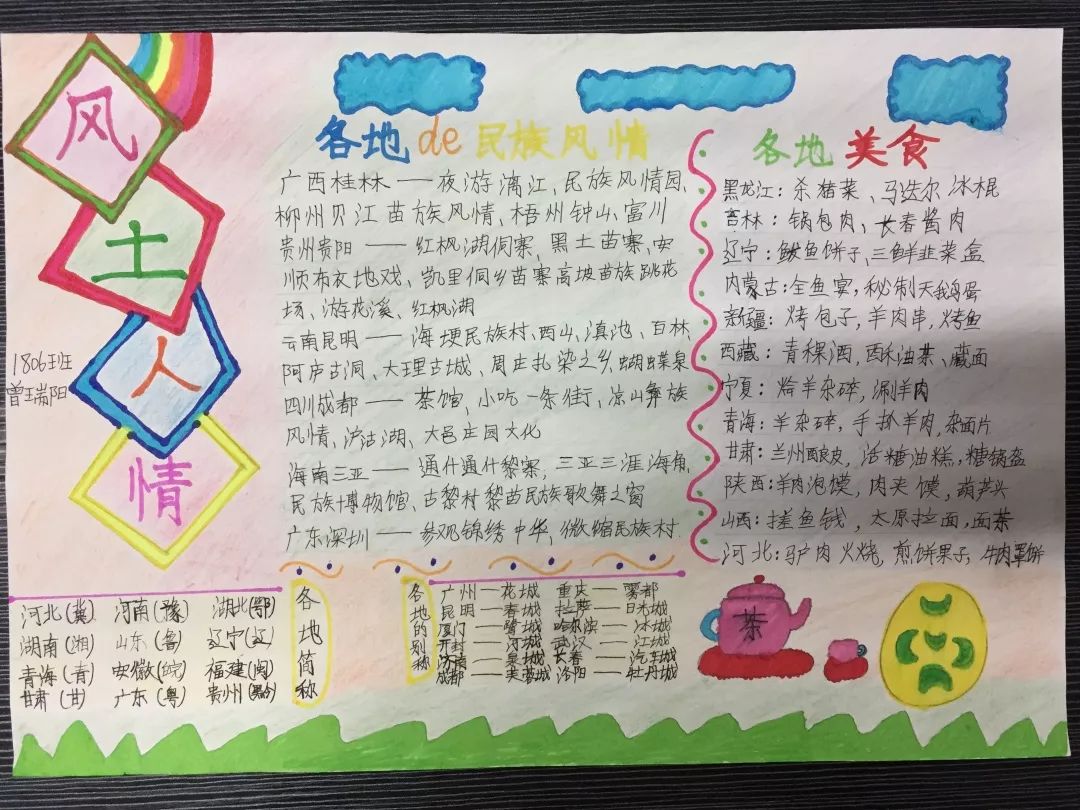 风
土
人
情
1806班
曾瑞阳
各地de民族风情
广西桂林——夜游漓江、民族风情园、
柳州贝江苗族风情、梧州钟山、富川
贵州贵阳——红枫湖侗寨、黑土苗寨、安
顺布衣地戏、凯里侗乡苗寨高坡苗族跳花
场、游花溪、红枫湖
云南昆明——海埂民族村、西山、滇池、百林
阿庐古洞、大理古城、周庄扎染之乡、蝴蝶泉
四川成都——茶馆、小吃一条街、凉山彝族
风情、泸沽湖、大邑庄园文化
海南三亚——通什通什黎寨、三亚三涯海角、
民族博物馆、古黎村黎苗民族歌舞之窗
广东深圳——参观锦绣中华、微缩民族村.
各地美食
黑龙江：杀猪菜、马迭尔冰棍
吉林：锅包肉、长春酱肉
辽宁：鲅鱼饼子、三鲜韭菜盒
内蒙古：全鱼宴，秘制天鹅蛋
新疆：烤包子，羊肉串，烤鱼
西藏：青稞酒，酥油茶、藏面
宁夏：烩羊杂碎，涮羊肉
青海：羊杂碎，手扒羊肉，杂面片
甘肃：兰州酿皮，活糖油糕，糖锅盔
陕西：羊肉泡馍，肉夹馍，葫芦头
山西：搓鱼钱，太原拉面，面茶
河北：驴肉火烧，煎饼果子，牛肉罩饼
河北(冀) 河南(豫) 湖北(鄂)
湖南(湘) 山东(鲁) 辽宁(辽)
青海(青) 安徽(皖) 福建(闽)
甘肃(甘) 广东(粤) 贵州(黔)
各地简称
各地的别称
广州—花城 重庆—雾都
昆明—春城 拉萨—日光城
厦门—鹭城 哈尔滨—冰城
开封—汴城 武汉—江城
济南—泉城 长春—汽车城
成都—芙蓉城 洛阳—牡丹城
茶